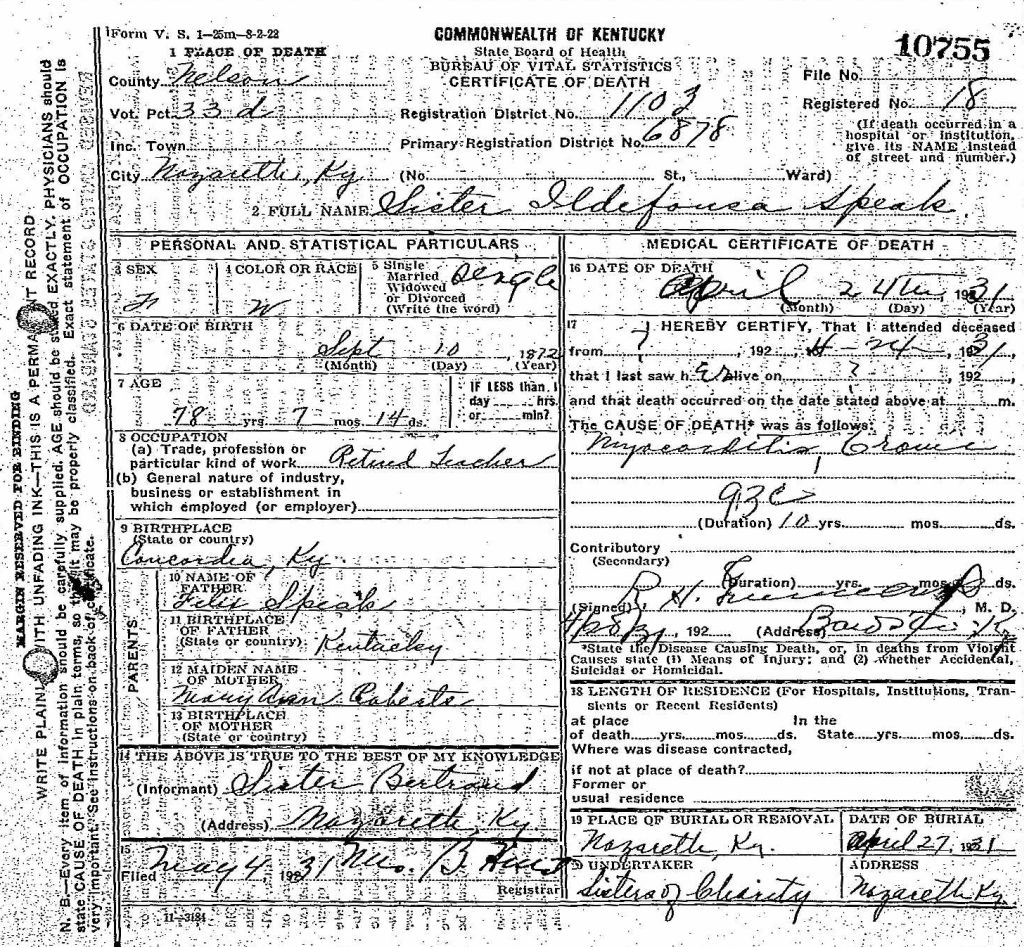 Form V. S. 1—25m—8-2-22
COMMONWEALTH OF KENTUCKY
State Board of Health
BUREAU OF VITAL STATISTICS
CERTIFICATE OF DEATH
10755
1 PLACE OF DEATH
County Nelson
Vot. Pct. 33d
Inc. Town
City Nazareth, Ky (No. St., Ward)
Registration District No. 1103
Primary Registration District No. 6878
File No.
Registered No. 18
(If death occurred in a
hospital or institution,
give its NAME instead
of street and number.)
2 FULL NAME Sister Ildefonsa Speak
PERSONAL AND STATISTICAL PARTICULARS
3 SEX
F
4 COLOR OR RACE
W
5 Single
Married
Widowed
or Divorced
(Write the word)
Single
6 DATE OF BIRTH
Sept 10, 1872
(Month) (Day) (Year)
7 AGE
78 yrs. 7 mos. 14 ds.
IF LESS than 1
day hrs.
or min?
8 OCCUPATION
(a) Trade, profession or
particular kind of work Retired Teacher
(b) General nature of industry,
business or establishment in
which employed (or employer)
9 BIRTHPLACE
(State or country)
Concordia, Ky
PARENTS
10 NAME OF
FATHER
Felix Speak
11 BIRTHPLACE
OF FATHER
(State or country) Kentucky
12 MAIDEN NAME
OF MOTHER
Mary Ann Roberts
13 BIRTHPLACE
OF MOTHER
(State or country)
14 THE ABOVE IS TRUE TO THE BEST OF MY KNOWLEDGE
(Informant) Sister Bertrand
(Address) Nazareth, Ky
15
Filed May 4 1931 Mrs. B
Registrar
11—3184
MEDICAL CERTIFICATE OF DEATH
16 DATE OF DEATH
April 24th, 1931
(Month) (Day) (Year)
17 I HEREBY CERTIFY, That I attended deceased
from ?, 192 , 4-24-, 1931,
that I last saw her alive on ?, 192
and that death occurred on the date stated above at m.
The CAUSE OF DEATH* was as follows:
Myocarditis Cronic
93c
(Duration) 10 yrs. mos. ds.
Contributory
(Secondary)
(Duration) yrs. mos. ds.
(Signed) R. H. , M. D.
, 192 (Address)
*State the Disease Causing Death, or, in deaths from Violent
Causes state (1) Means of Injury; and (2) whether Accidental,
Suicidal or Homicidal.
18 LENGTH OF RESIDENCE (For Hospitals, Institutions, Tran-
sients or Recent Residents)
at place In the
of death yrs. mos. ds. State yrs. mos. ds.
Where was disease contracted,
if not at place of death?
Former or
usual residence
19 PLACE OF BURIAL OR REMOVAL
Nazareth, Ky.
DATE OF BURIAL
April 27, 1931
20 UNDERTAKER
Sisters of Charity
ADDRESS
Nazareth Ky
MARGIN RESERVED FOR BINDING
WRITE PLAINLY WITH UNFADING INK—THIS IS A PERMANENT RECORD
N. B.—Every item of information should be carefully supplied. AGE should be stated EXACTLY. PHYSICIANS should
state CAUSE OF DEATH in plain terms, so that it may be properly classified. Exact statement of OCCUPATION is
very important. See instructions on back of certificate.